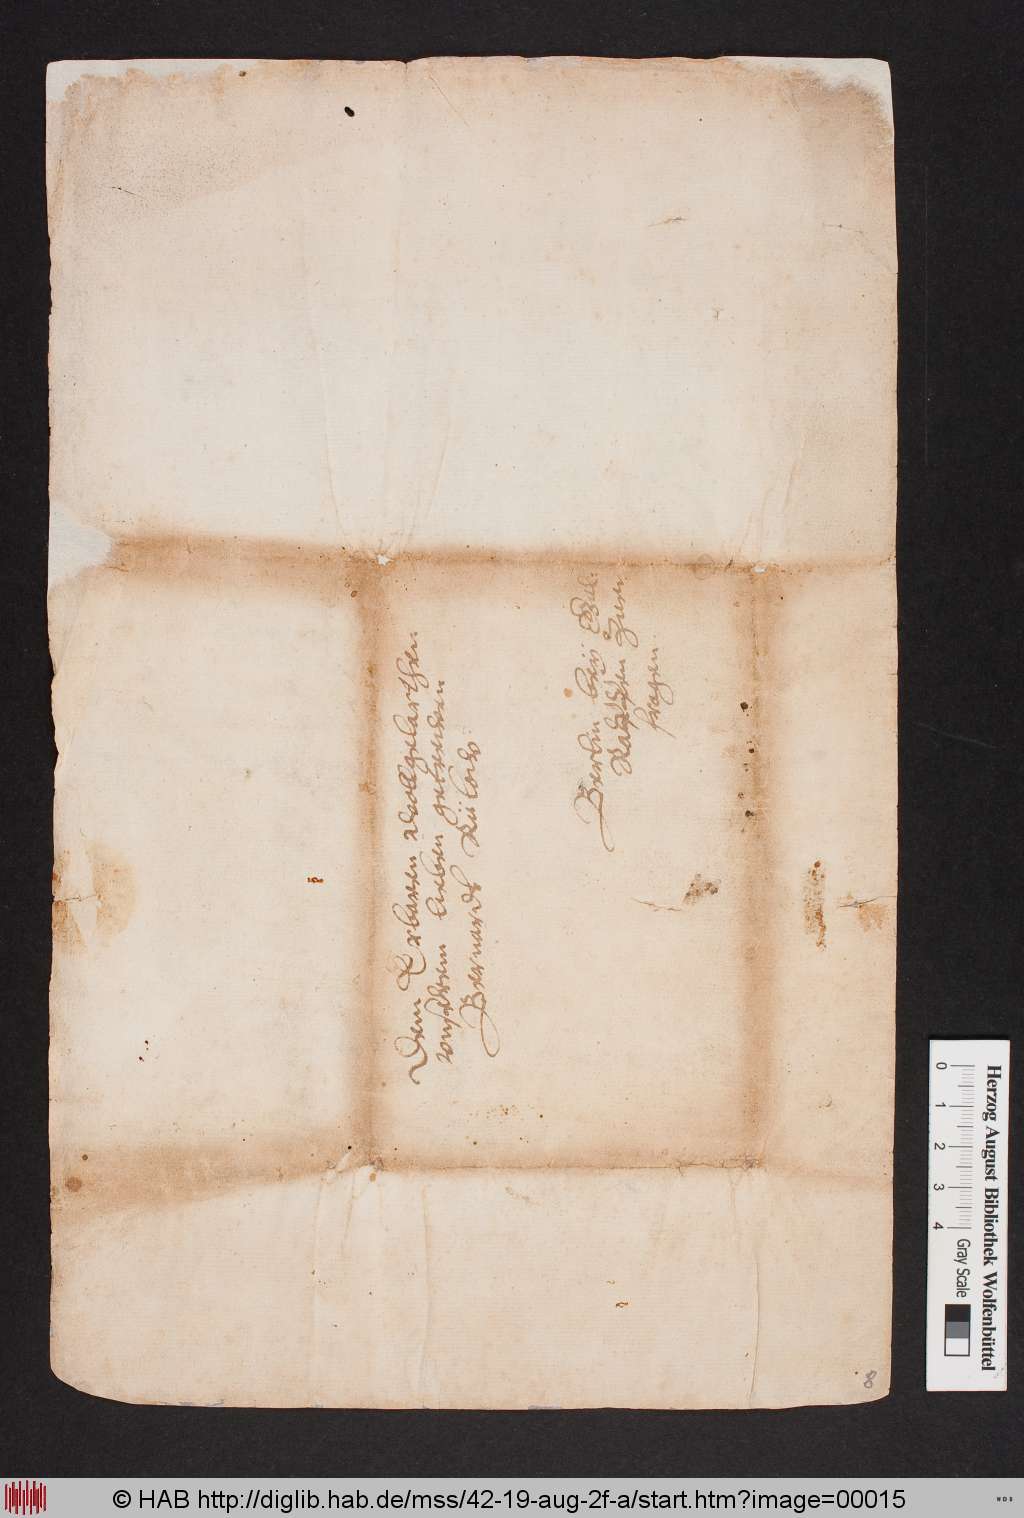 Dem Erbaren Wollgelarthen
unserem lieben getrewen
Bernardt
Berlin bey
Zuer
fragen
8
Herzog August Bibliothek Wolfenbüttel
0 1 2 3 4
Gray Scale
© HAB http://diglib.hab.de/mss/42-19-aug-2f-a/start.htm?image=00015